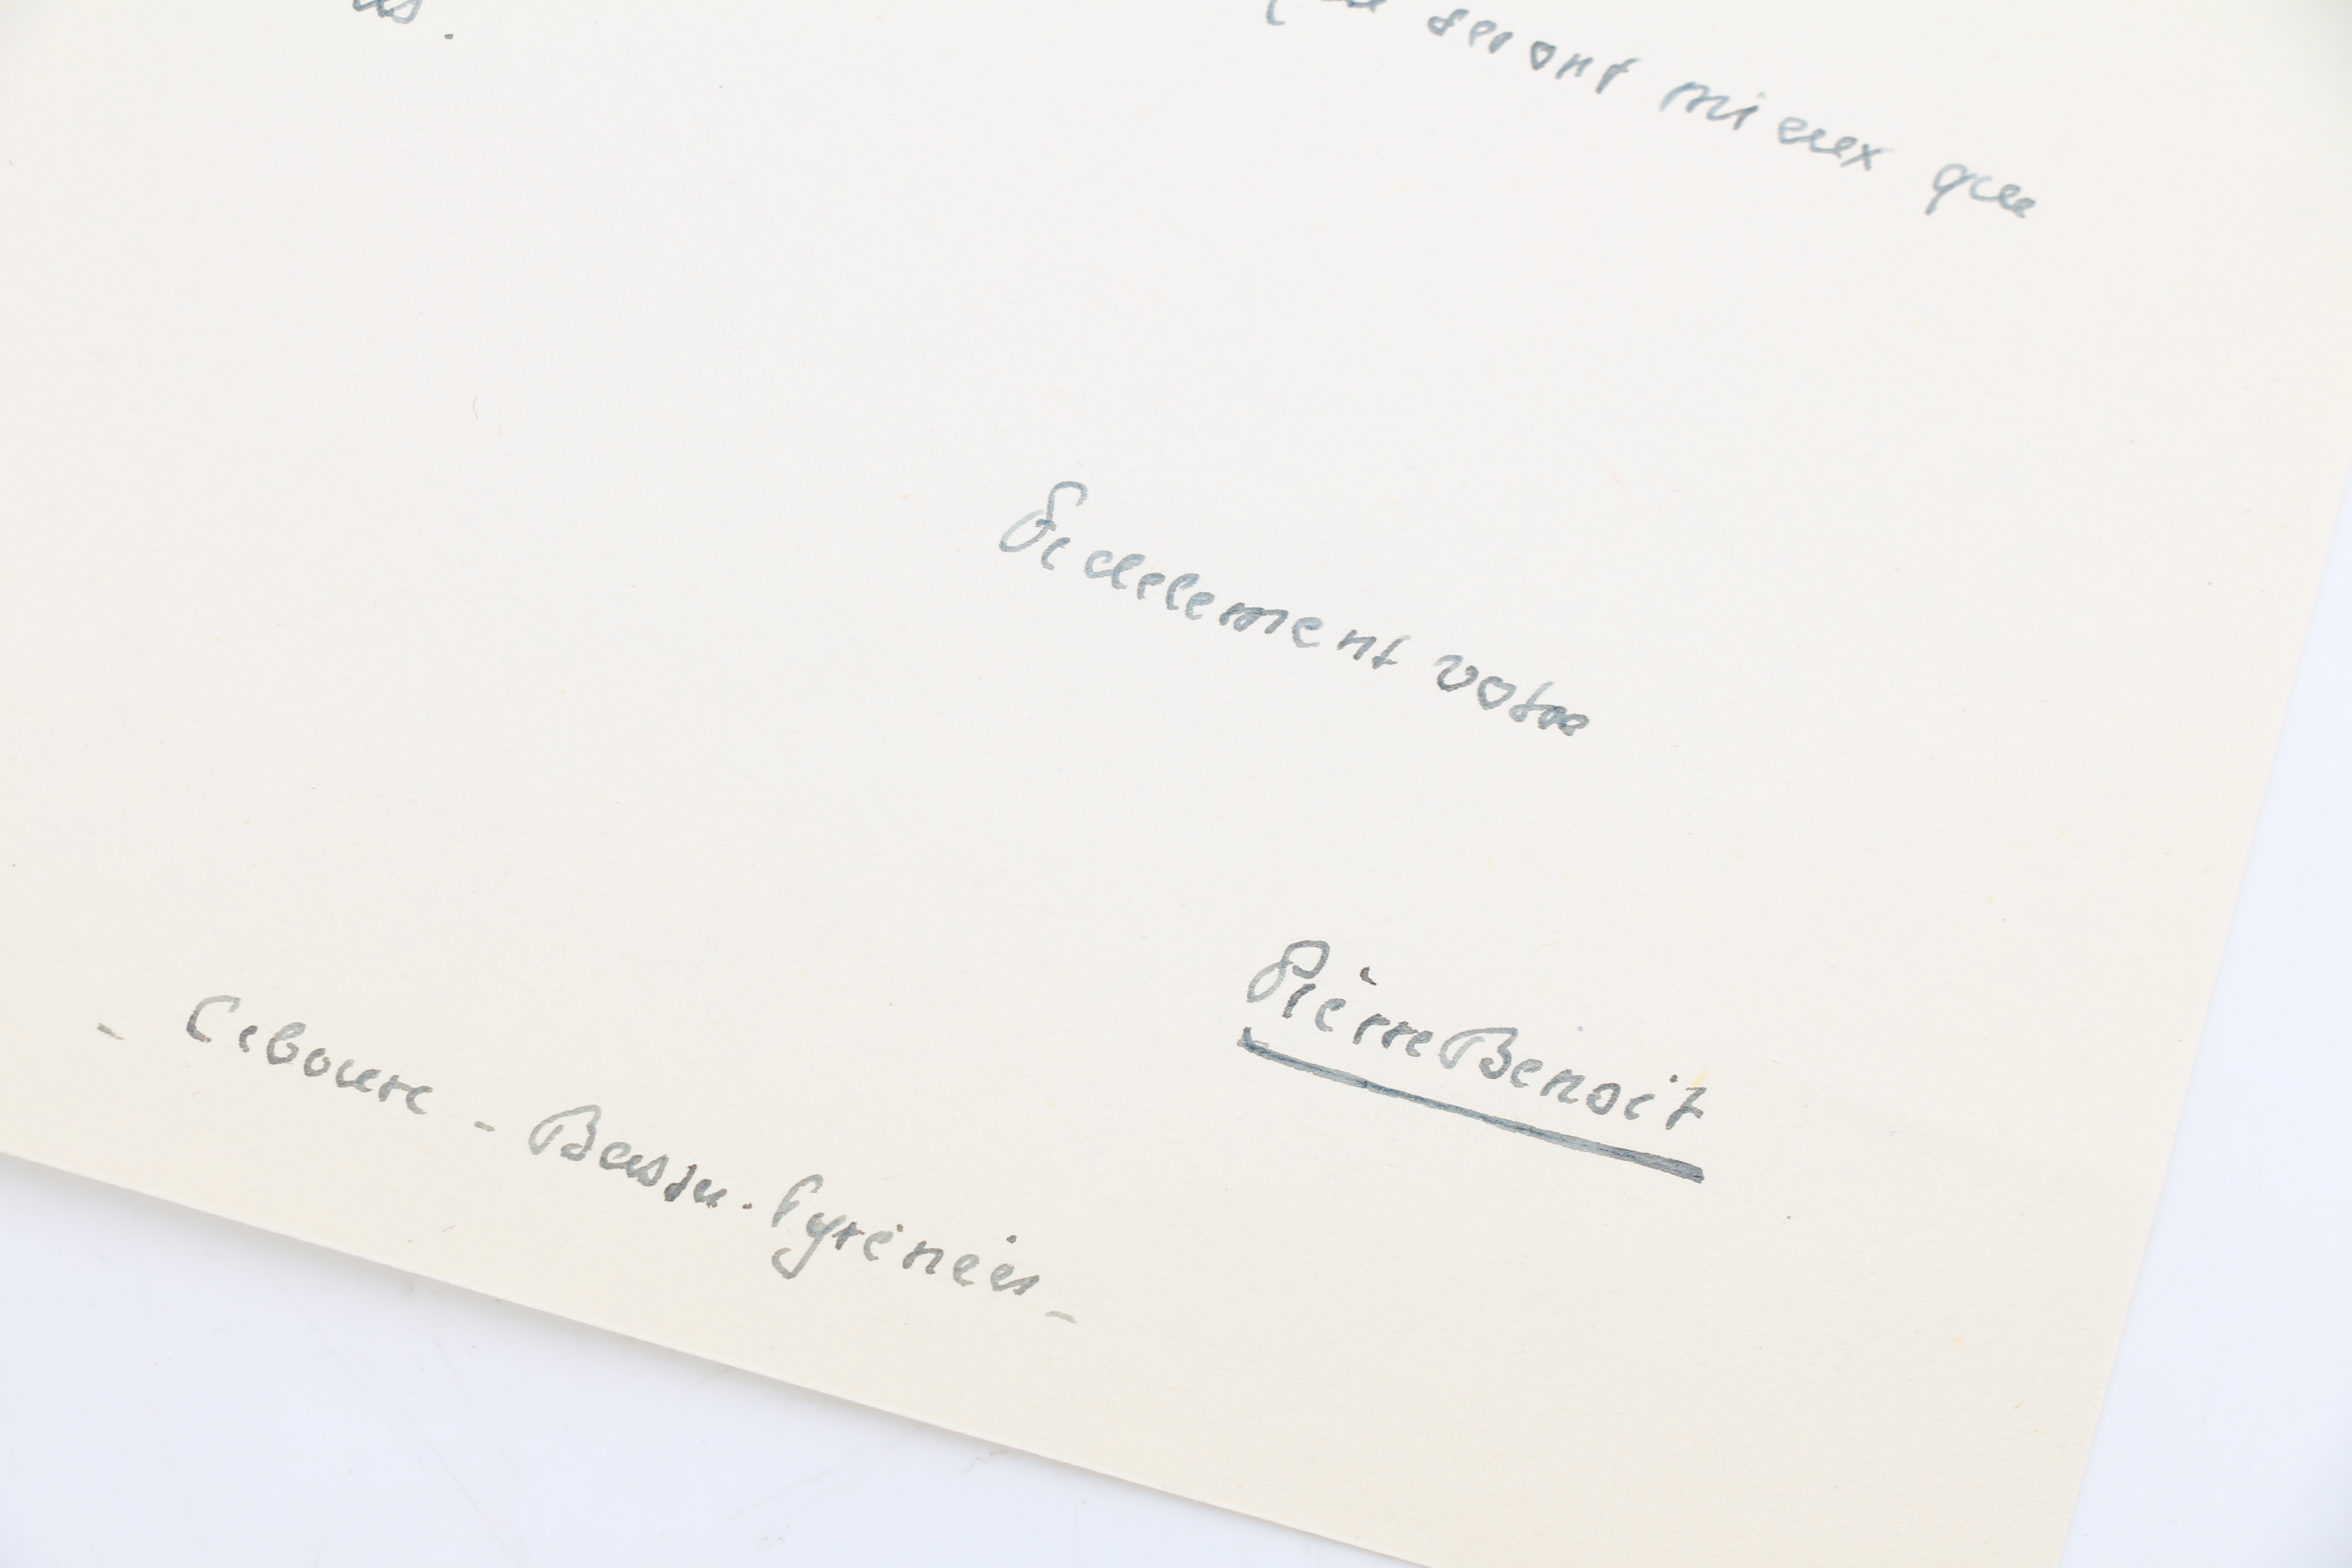 seront mieux que
Fidelement votre
Pierre Benoit
- Ciboure - Basses-Pyrénées -